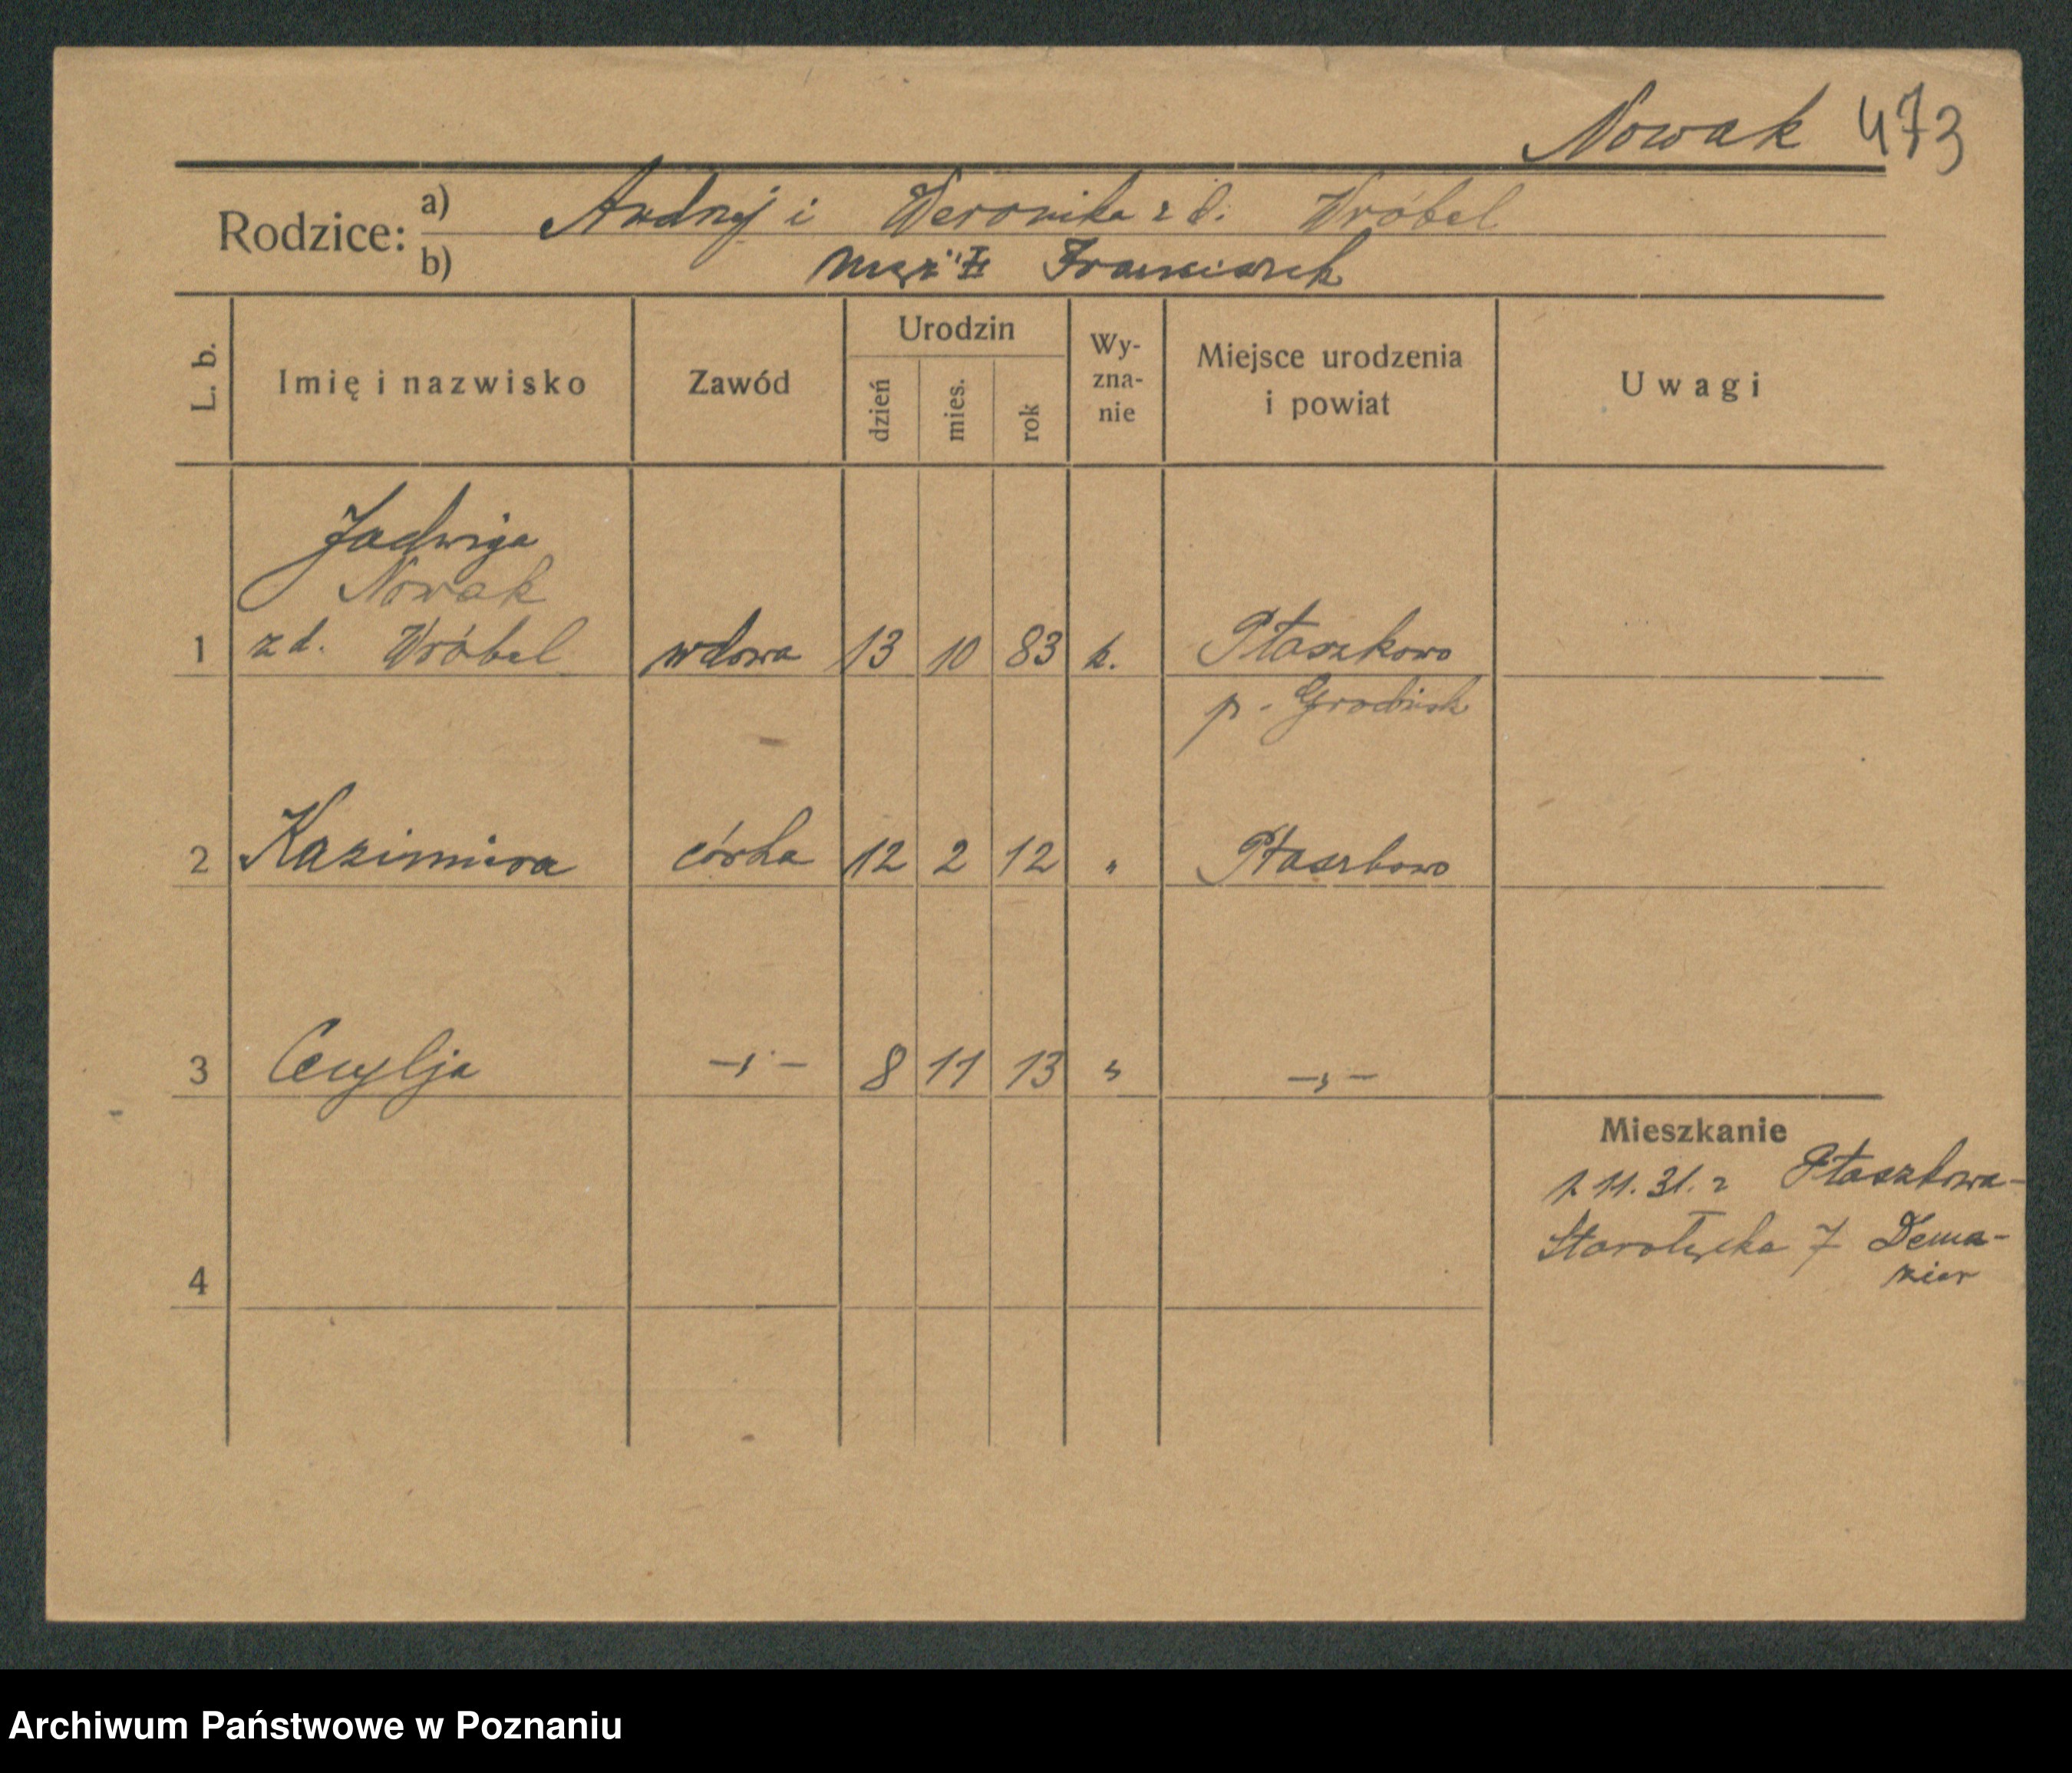 Nowak 473
Rodzice: a) Andrzej i Weronika z d. Wróbel
b) mąż Franciszek
L. b. Imię i nazwisko Zawód Urodzin dzień mies. rok Wy-zna-nie Miejsce urodzenia i powiat Uwagi
Jadwiga
Nowak
1 z d. Wróbel wdowa 13 10 83 k. Ptaszkowo
p. Grodzisk
2 Kazimiera córka 12 2 12 " Ptaszkowo
3 Cecylja -"- 8 11 13 " -"-
Mieszkanie
1. 11. 31. z Ptaszkowa-
Starołęcka 7
4
Archiwum Państwowe w Poznaniu